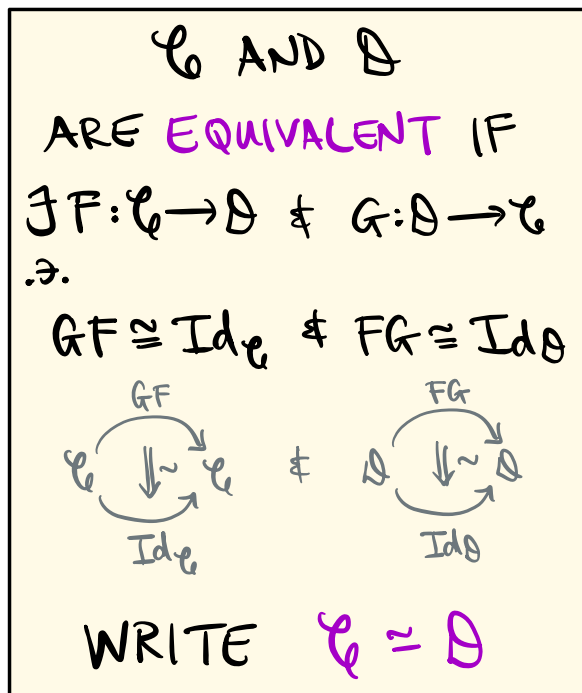 𝒞 AND 𝒟
ARE EQUIVALENT IF
∃ F:𝒞→𝒟 & G:𝒟→𝒞
.∋.
GF ≅ Id𝒞 & FG ≅ Id𝒟
GF FG
𝒞 ⇓~ 𝒞 & 𝒟 ⇓~ 𝒟
Id𝒞 Id𝒟
WRITE 𝒞 ≃ 𝒟